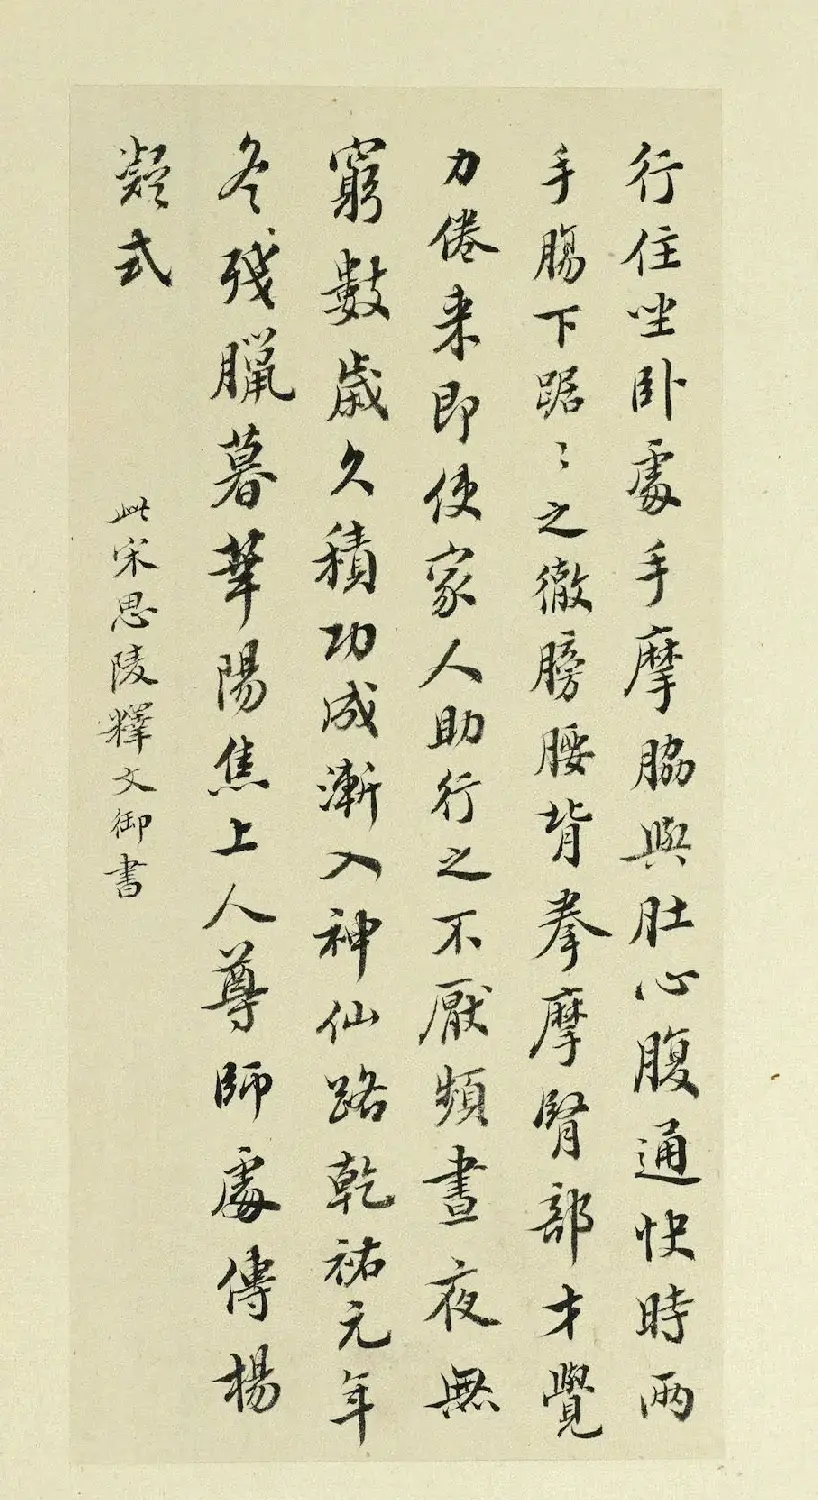 行住坐卧處手摩脇與肚心腹通快時兩
手腸下踞〻之徹膀腰背拳摩腎部才覺
力倦来即使家人助行之不厭頻晝夜無
窮數歲久積功成漸入神仙路乾祐元年
冬殘臘暮華陽焦上人尊師處傳楊
凝式
此宋思陵釋文御書